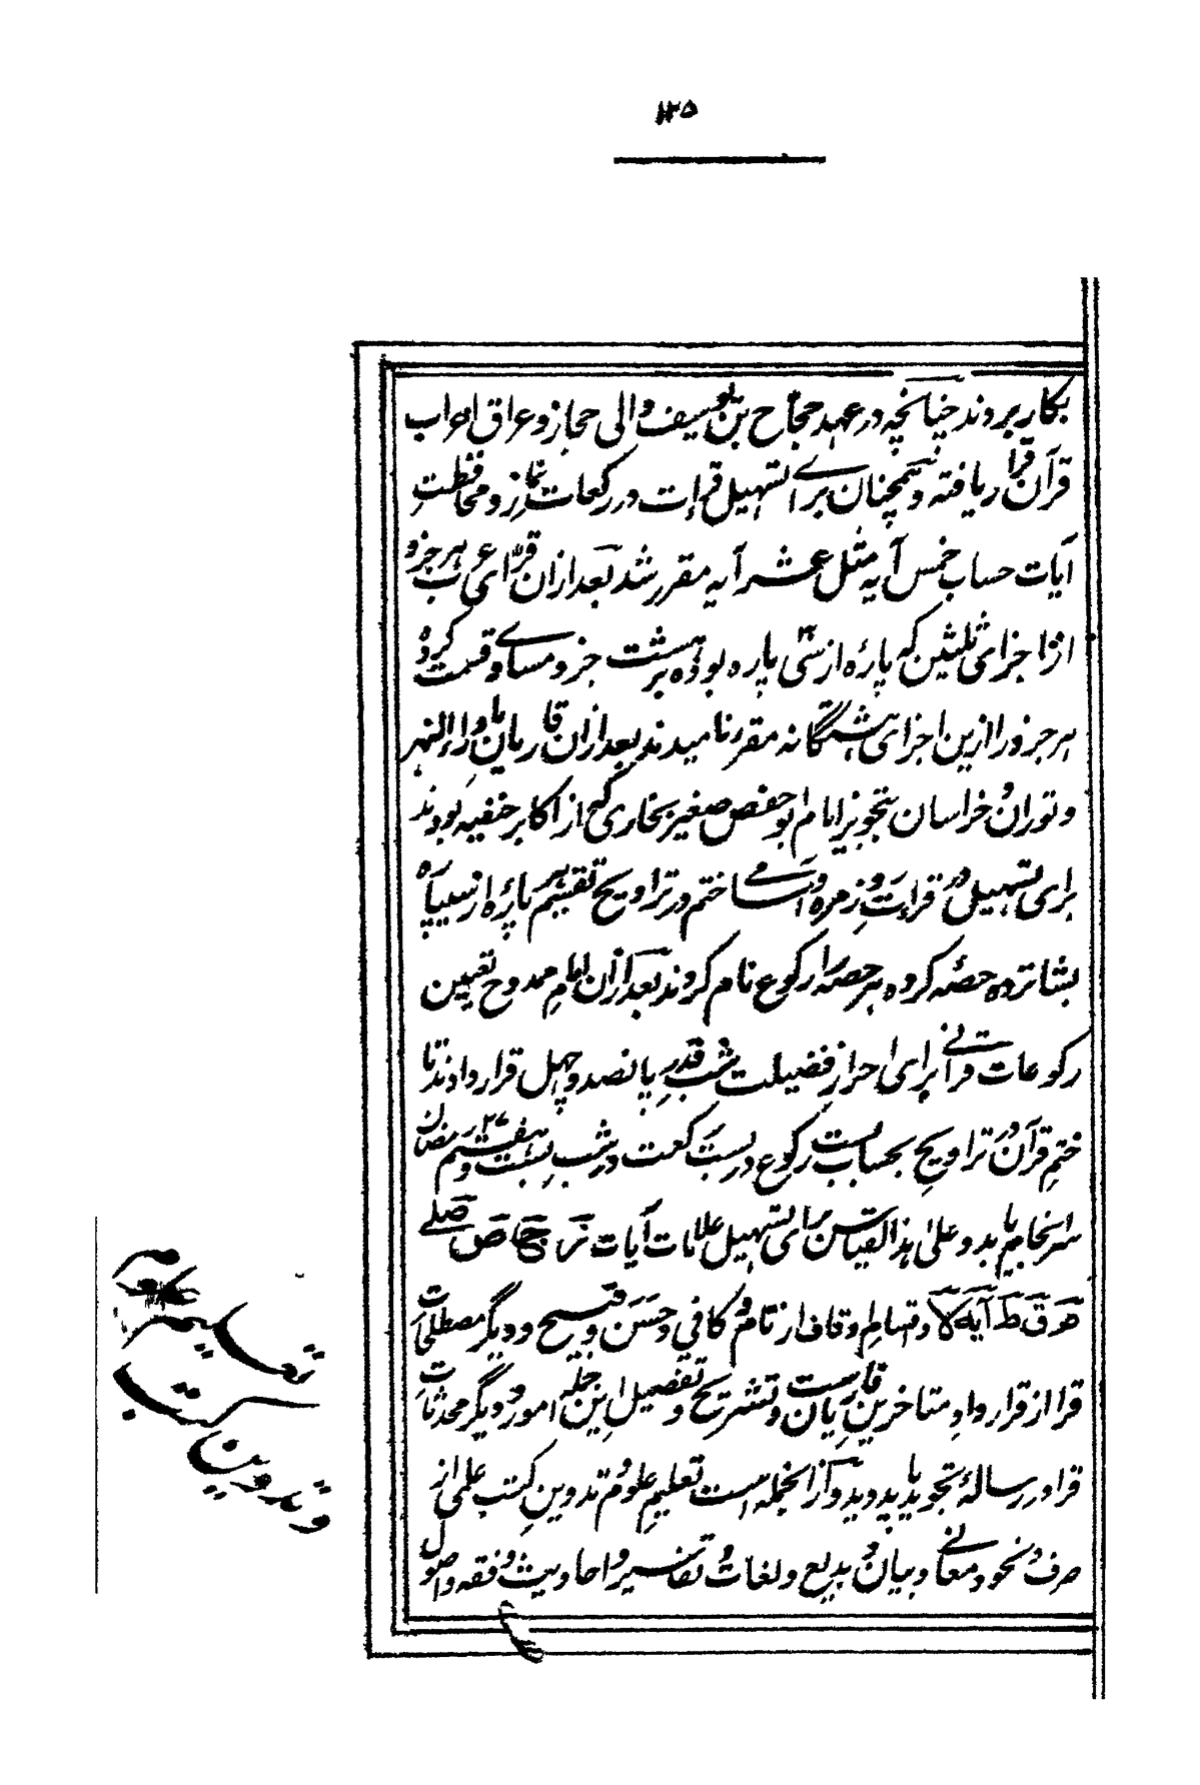 ۱۲۵
بکار بروند چنانچه در عهد حجاج بن یوسف والی حجاز و عراق اعراب
قرآن قرار یافته و همچنان برای تسهیل قرات در رکعات نماز و محافظت
آیات حساب خمس آیه مثل عشر آیه مقرر شد بعد ازان قرای عرب هر جزو
از اجزای ثلثین که پارهٔ از سی پاره بوده بر هشت جزو مساوی قسمت کرده
هر جزو را ازین اجزای هشتگانه مقر نامیدند بعد ازان قاریان ماوراء النهر
و توران و خراسان بتجویز امام ابو حفص صغیر بخاری که از اکابر حنفیه بودند
برای تسهیل در قراءت روزمره و ختم در تراویح تقسیم هر پارهٔ از سیپاره
بشانزده حصه کرده هر حصه را رکوع نام کردند بعد ازان امام ممدوح تعیین
رکوعات قرآنی برای احراز فضیلت شب قدر پانصد و چهل قرار دادند تا
ختم قرآن در تراویح بحساب بست رکوع در بست رکعت در شب بست و هفتم ۲۷ رمضان
سرانجام یابد و علی هذا القیاس برای تسهیل علامات آیات ز ج ص صلی
ق ط آیه لا و اقسام اوقاف از تام و کافی و حسن و قبیح و دیگر مصطلحات
قرا از قرارداد متاخرین قاریان ست و تشریح و تفصیل این جمله امور و دیگر محدثات
قرا در رسالهٔ تجوید باید دید و از انجمله است تعلیم علوم تدوین کتب علمی از
صرف و نحو و معانی و بیان و بدیع و لغات و تفاسیر و احادیث و فقه و اصول
تعلیم علوم
کتب
و تدوین